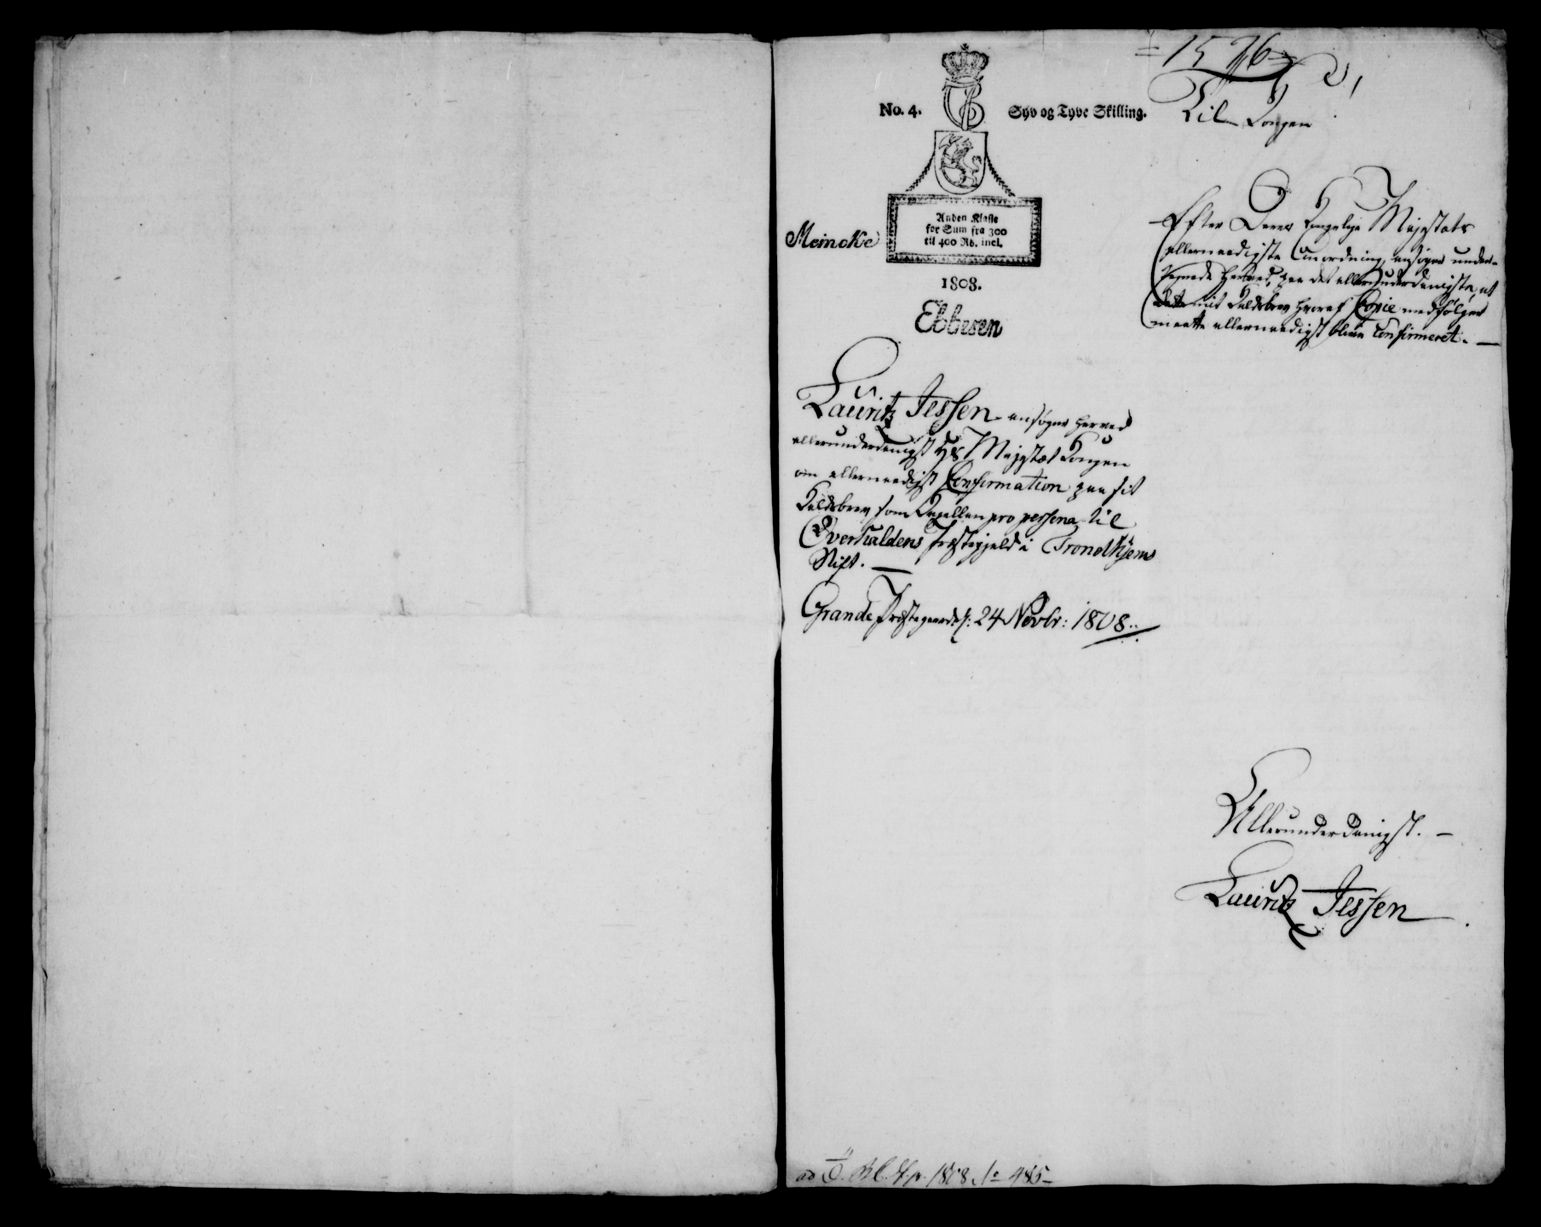 1596
Til Kongen
No. 4.
Syv og Tyve Skilling.
Anden Klasse
for Sum fra 300
til 400 Rd. incl.
Meincke
1808.
Ebbesen
Efter Deres Kongelige Majestæts
allernaadigste Anordning, ansøges under-
tegnede herved, paa det allerunderdanigste, at
mit Kaldsbrev hvoraf Copie medfølger
maatte allernaadigst blive Confirmeret. —
Lauritz Jessen ansøger herved
allerunderdanigst Hs Majestæt Kongen
om allernaadigst Confirmation paa sit
Kaldsbrev som Capellan pro persona til
Overhaldens Præstegjeld i Trondhjems
Stift. —
Grande Præstegaard d: 24 Novbr: 1808.
Allerunderdanigst. —
Lauritz Jessen
1808 No 485